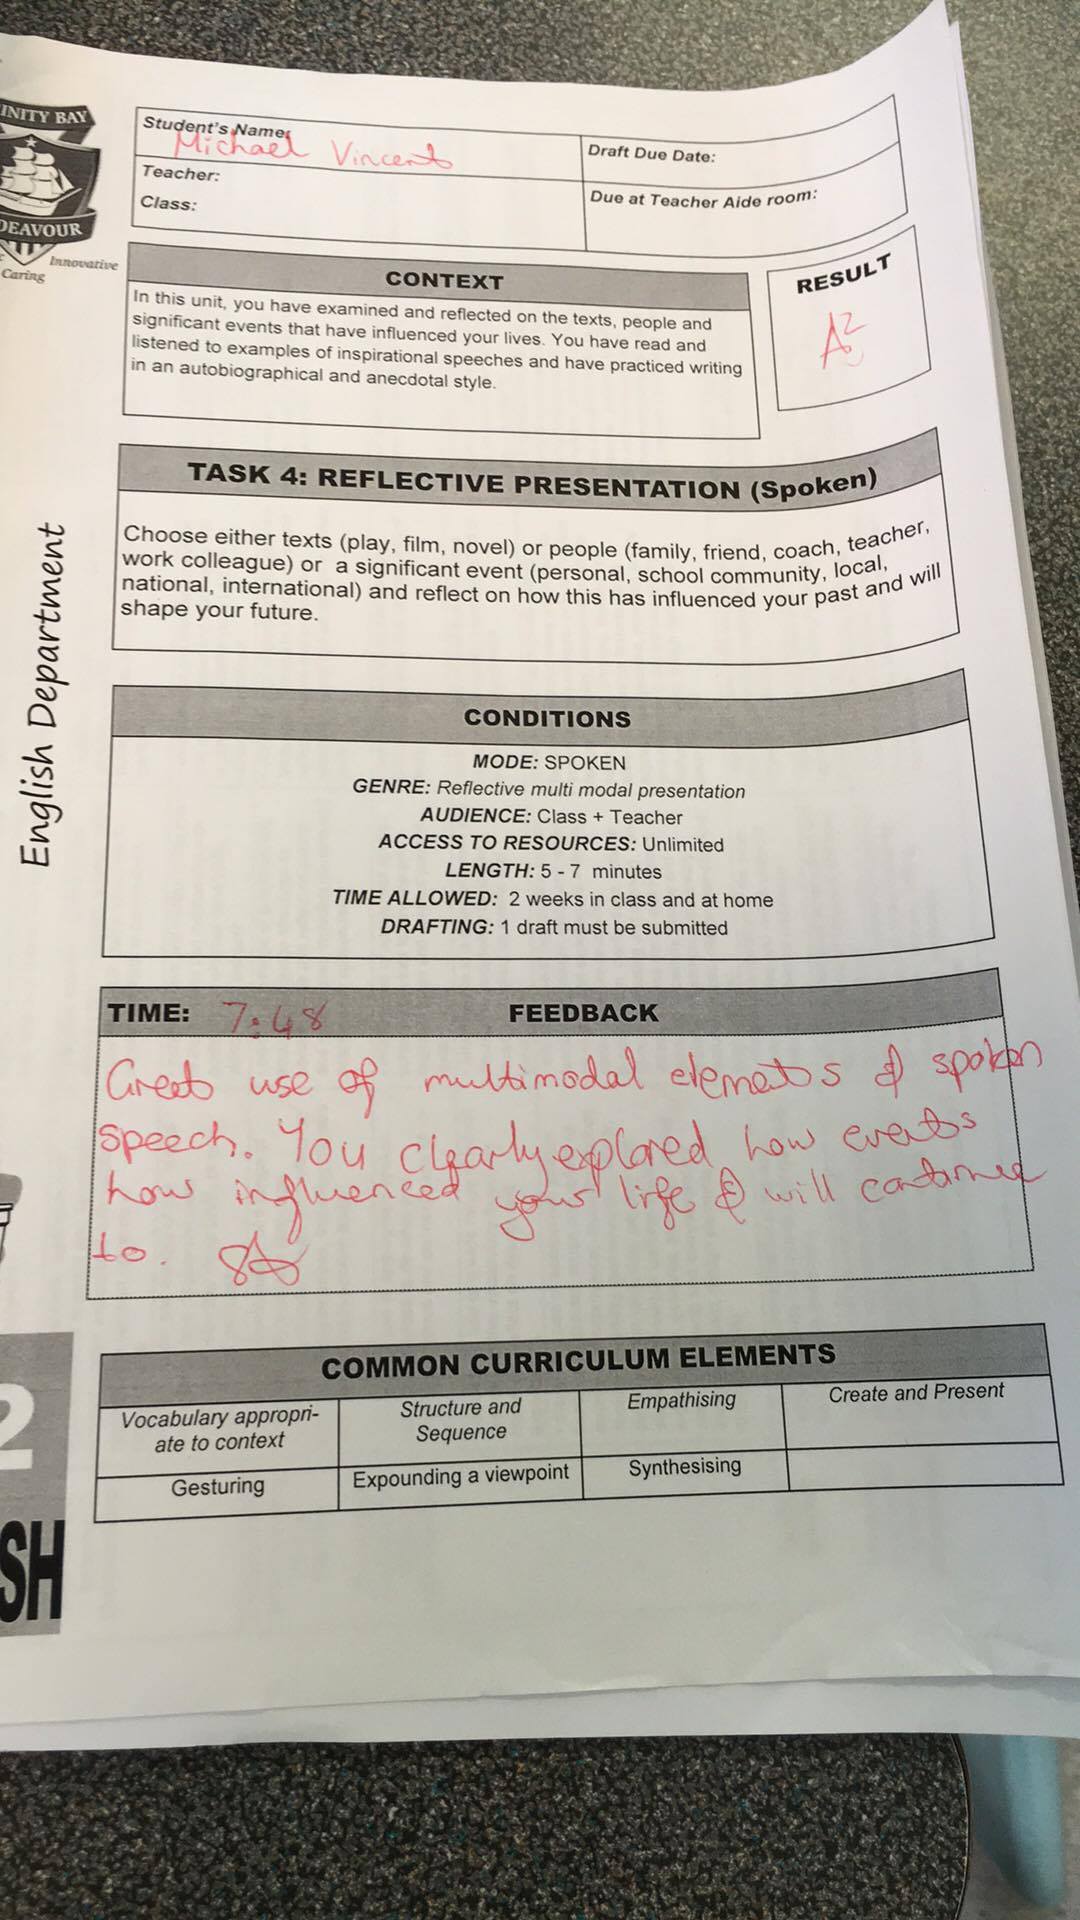 INITY BAY
DEAVOUR
Innovative
Caring
Student's Name:
Michael Vincent
Teacher:
Class:
Draft Due Date:
Due at Teacher Aide room:
CONTEXT
In this unit, you have examined and reflected on the texts, people and
significant events that have influenced your lives. You have read and
listened to examples of inspirational speeches and have practiced writing
in an autobiographical and anecdotal style.
RESULT
A2
TASK 4: REFLECTIVE PRESENTATION (Spoken)
Choose either texts (play, film, novel) or people (family, friend, coach, teacher,
work colleague) or a significant event (personal, school community, local,
national, international) and reflect on how this has influenced your past and will
shape your future.
English Department
CONDITIONS
MODE: SPOKEN
GENRE: Reflective multi modal presentation
AUDIENCE: Class + Teacher
ACCESS TO RESOURCES: Unlimited
LENGTH: 5 - 7 minutes
TIME ALLOWED: 2 weeks in class and at home
DRAFTING: 1 draft must be submitted
TIME: 7:48 FEEDBACK
Great use of multimodal elements & spoken
speech. You clearly explored how events
how influenced your life & will continue
to.
COMMON CURRICULUM ELEMENTS
Vocabulary appropri-
ate to context
Structure and
Sequence
Empathising
Create and Present
Gesturing
Expounding a viewpoint
Synthesising
2
SH